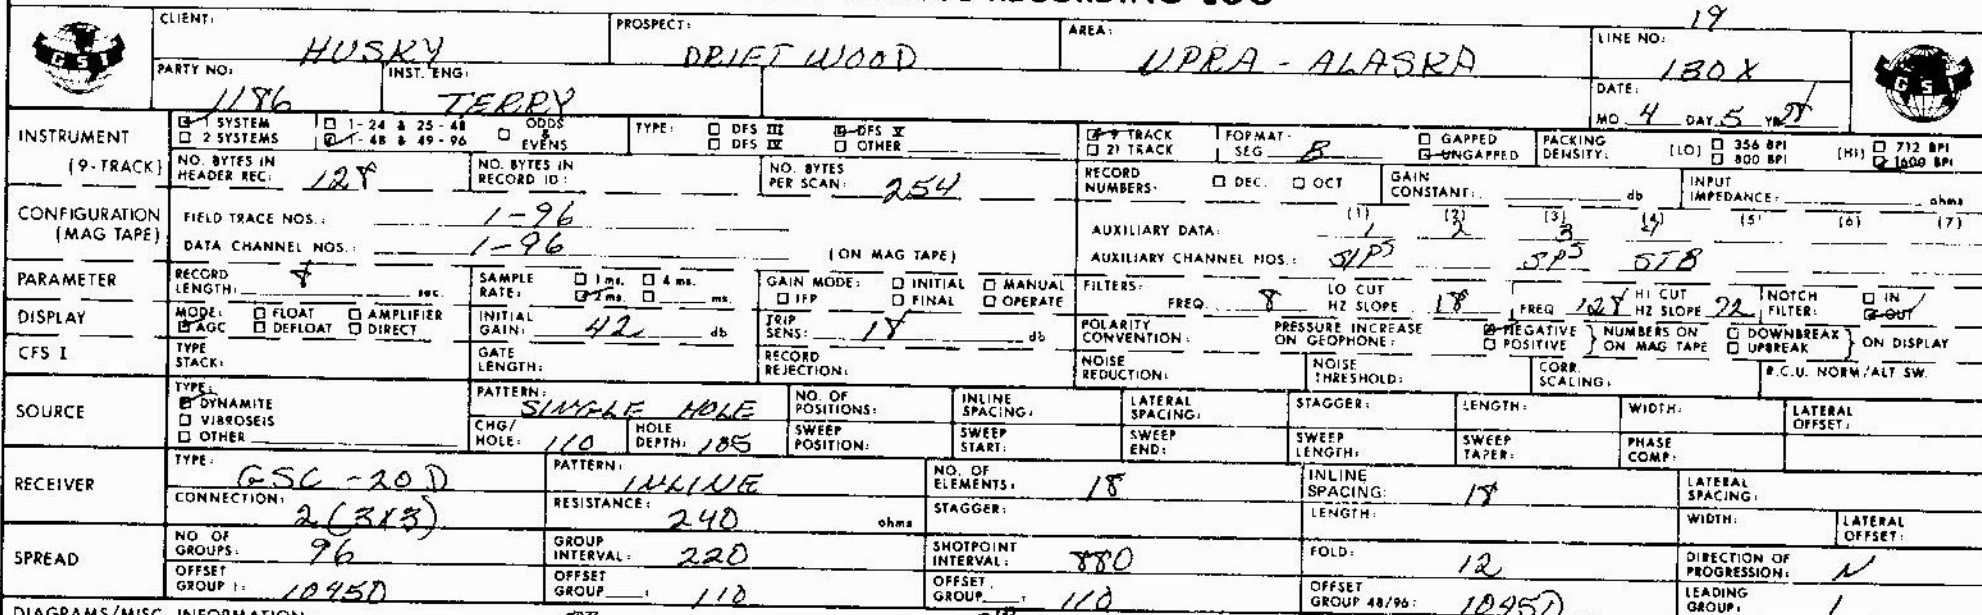 RECORDING LOG
19
GSI CLIENT: HUSKY PROSPECT: DRIFTWOOD AREA: UPRA - ALASKA LINE NO: 130X GSI
PARTY NO: 1186 INST. ENG: TERRY DATE: MO 4 DAY 5 YR
INSTRUMENT (9-TRACK)
1 SYSTEM 1-24 & 25-48 ODDS & EVENS TYPE: DFS III DFS V 9 TRACK FORMAT- SEG B GAPPED PACKING DENSITY: [LO] 356 BPI (HI) 712 BPI
2 SYSTEMS 1-48 & 49-96 DFS IV OTHER 21 TRACK UNGAPPED 800 BPI 1600 BPI
NO. BYTES IN HEADER REC: 128 NO. BYTES IN RECORD ID: NO. BYTES PER SCAN: 254 RECORD NUMBERS: DEC. OCT GAIN CONSTANT: db INPUT IMPEDANCE: ohms
CONFIGURATION (MAG TAPE)
FIELD TRACE NOS.: 1-96 AUXILIARY DATA: (1) 1 (2) 2 (3) 3 (4) 4 (5) (6) (7)
DATA CHANNEL NOS.: 1-96 (ON MAG TAPE) AUXILIARY CHANNEL NOS.: STB
PARAMETER RECORD LENGTH: 8 sec. SAMPLE RATE: 1 ms. 4 ms. 2 ms. ms. GAIN MODE: INITIAL MANUAL IFP FINAL OPERATE FILTERS: FREQ. 8 LO CUT HZ SLOPE 18 FREQ 128 HI CUT HZ SLOPE 72 NOTCH FILTER: IN OUT
DISPLAY MODE: FLOAT AMPLIFIER AGC DEFLOAT DIRECT INITIAL GAIN: 42 db TRIP SENS: 18 db POLARITY CONVENTION: PRESSURE INCREASE ON GEOPHONE: NEGATIVE POSITIVE } NUMBERS ON MAG TAPE DOWNBREAK UPBREAK } ON DISPLAY
CFS I TYPE STACK: GATE LENGTH: RECORD REJECTION: NOISE REDUCTION: NOISE THRESHOLD: CORR. SCALING: R.C.U. NORM/ALT SW.
SOURCE TYPE: DYNAMITE VIBROSEIS OTHER PATTERN: SINGLE HOLE NO. OF POSITIONS: INLINE SPACING: LATERAL SPACING: STAGGER: LENGTH: WIDTH: LATERAL OFFSET:
CHG/HOLE: 110 HOLE DEPTH: 105 SWEEP POSITION: SWEEP START: SWEEP END: SWEEP LENGTH: SWEEP TAPER: PHASE COMP:
RECEIVER TYPE: GSC-20D PATTERN: INLINE NO. OF ELEMENTS: 18 INLINE SPACING: 18 LATERAL SPACING:
CONNECTION: 2(3X3) RESISTANCE: 240 ohms STAGGER: LENGTH: WIDTH: LATERAL OFFSET:
SPREAD NO. OF GROUPS: 96 GROUP INTERVAL: 220 SHOTPOINT INTERVAL: 880 FOLD: 12 DIRECTION OF PROGRESSION: N
OFFSET GROUP 1: 10450 OFFSET GROUP : 110 OFFSET GROUP : 110 OFFSET GROUP 48/96: 10450 LEADING GROUP: 1
DIAGRAMS/MISC. INFORMATION